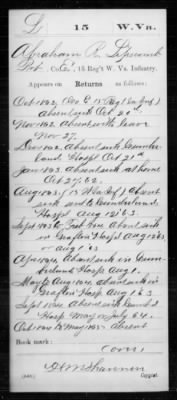 L | 15 | W. Va.
Abraham R. Lipscomb
Pvt., Co. E, 15 Reg't W. Va. Infantry.
Appears on Returns as follows:
Oct 1862, (Co E 15 Reg Va Inf)
absent sick Oct 21st
Nov 1862 Absent without leave
Nov 27.
Dec 1862. Absent sick Cumber-
land Hosp Oct 21st
Jan 1863. Absent sick at home
Oct 27/62.
Aug 1863, (15 W Va Inf) Absent
sick sent to Cumberland
Hospl Aug 12/63.
Sept 1863 to Absent
sick Grafton Hosp Aug 12/63
or Aug 1/63
Absent sick in Cum-
berland Hosp. Aug 1.
May Aug 1864, absent sick in
Grafton Hosp Aug 1 63
Sept 1864. Absent sick
Hosp May or July 64.
Oct 1864 to May 1865 absent
Book mark:
Copyist.